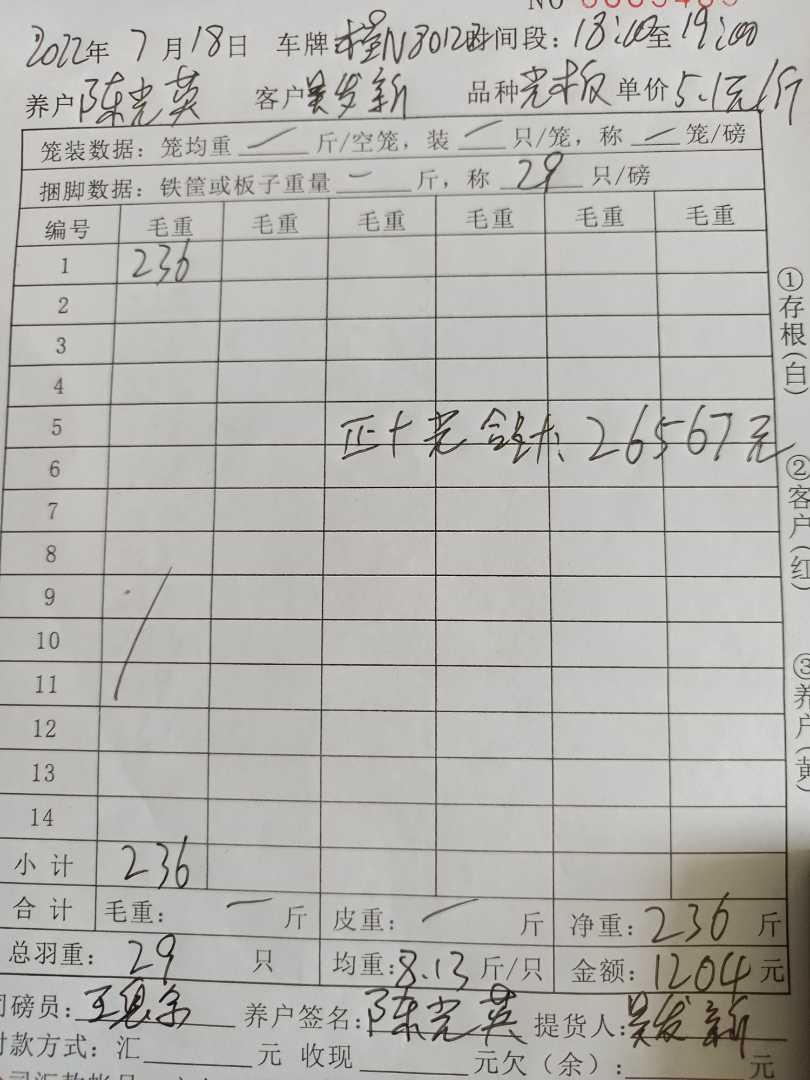 NO
2022年 7 月 18 日 车牌: 桂N80122 时间段: 18:00 至 19:00
养户 陈光英 客户 吴发新 品种 光板 单价 5.1元/斤
笼装数据: 笼均重 — 斤/空笼, 装 — 只/笼, 称 — 笼/磅
捆脚数据: 铁筐或板子重量 — 斤, 称 29 只/磅
编号 毛重 毛重 毛重 毛重 毛重 毛重
1 236
2
3
4
5
正+光 合计: 26567元
6
7
8
9
10
11
12
13
14
小计 236
合计 毛重: — 斤 皮重: — 斤 净重: 236 斤
总羽重: 29 只 均重: 8.13 斤/只 金额: 1204 元
司磅员: 养户签名: 陈光英 提货人: 吴发新
付款方式: 汇 元 收现 元欠(余): 元
①存根(白)
②客户(红)
③养户(黄)